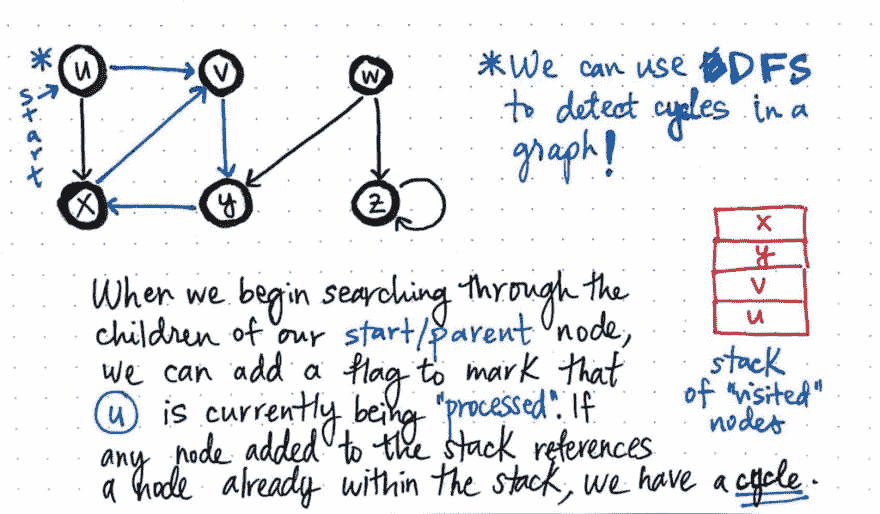 *
u
v
w
start
x
y
z
*We can use DFS
to detect cycles in a
graph!
x
y
v
u
stack
of "visited"
nodes
When we begin searching through the
children of our start/parent node,
we can add a flag to mark that
u is currently being "processed". If
any node added to the stack references
a node already within the stack, we have a cycle.